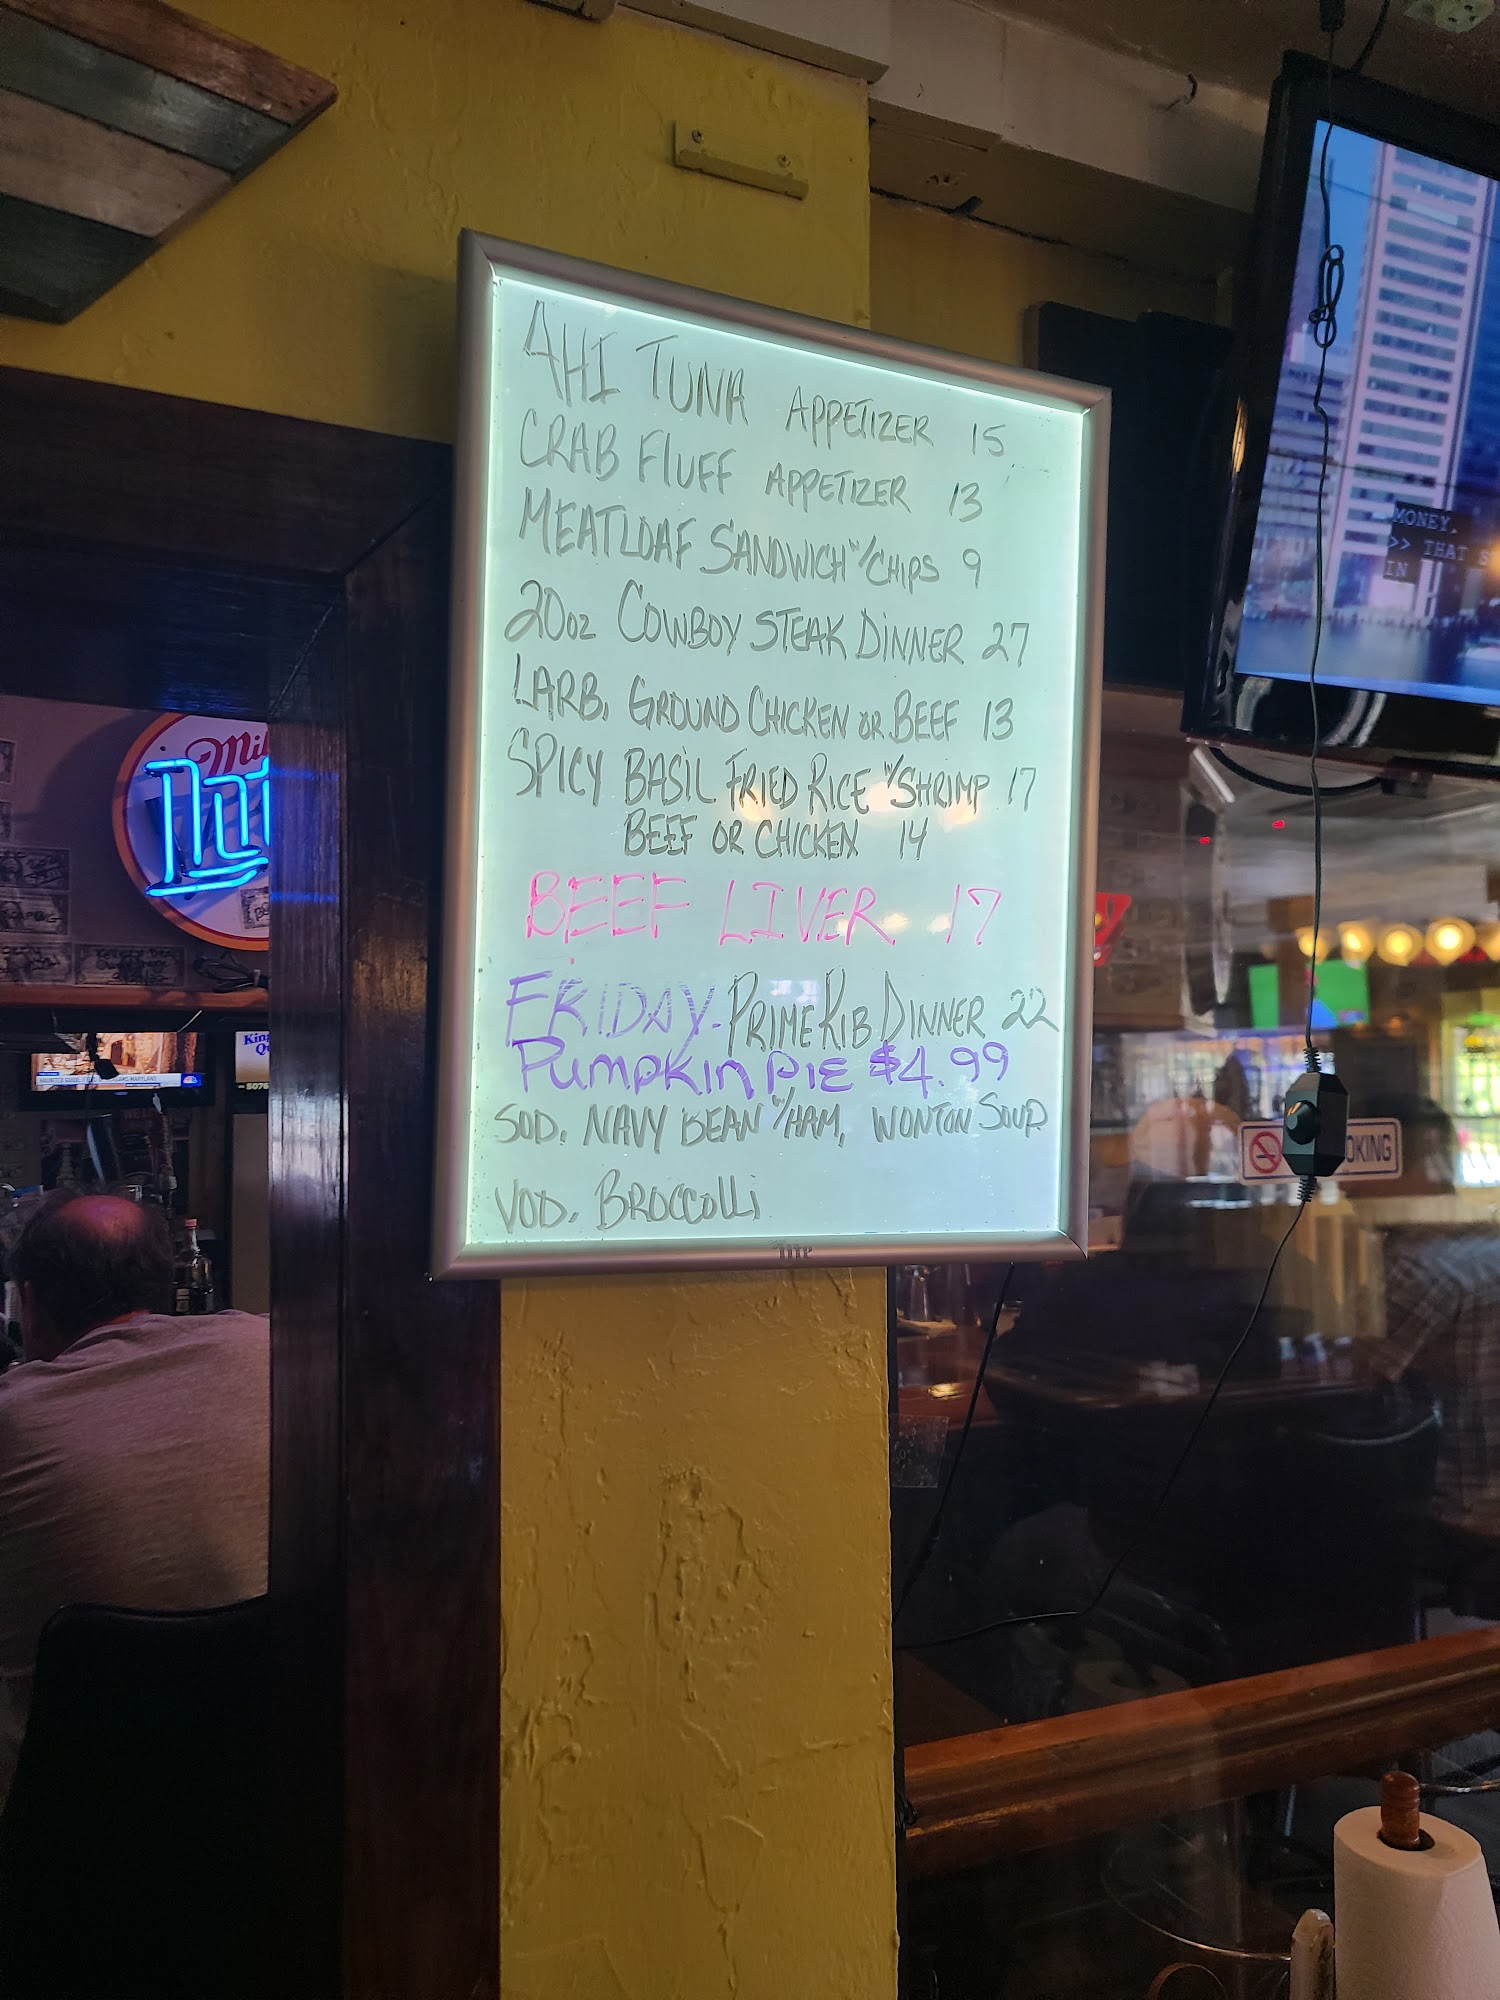 AHI TUNA APPETIZER 15
CRAB FLUFF APPETIZER 13
MEATLOAF SANDWICH W/CHIPS 9
20oz COWBOY STEAK DINNER 27
LARB, GROUND CHICKEN OR BEEF 13
SPICY BASIL FRIED RICE W/SHRIMP 17
BEEF OR CHICKEN 14
BEEF LIVER 17
FRIDAY- PRIME RIB DINNER 22
PUMPKIN PIE $4.99
SOD. NAVY BEAN W/HAM, WONTON SOUP
VOD. BROCCOLLi
Lite
MONEY.
>> THAT
IN